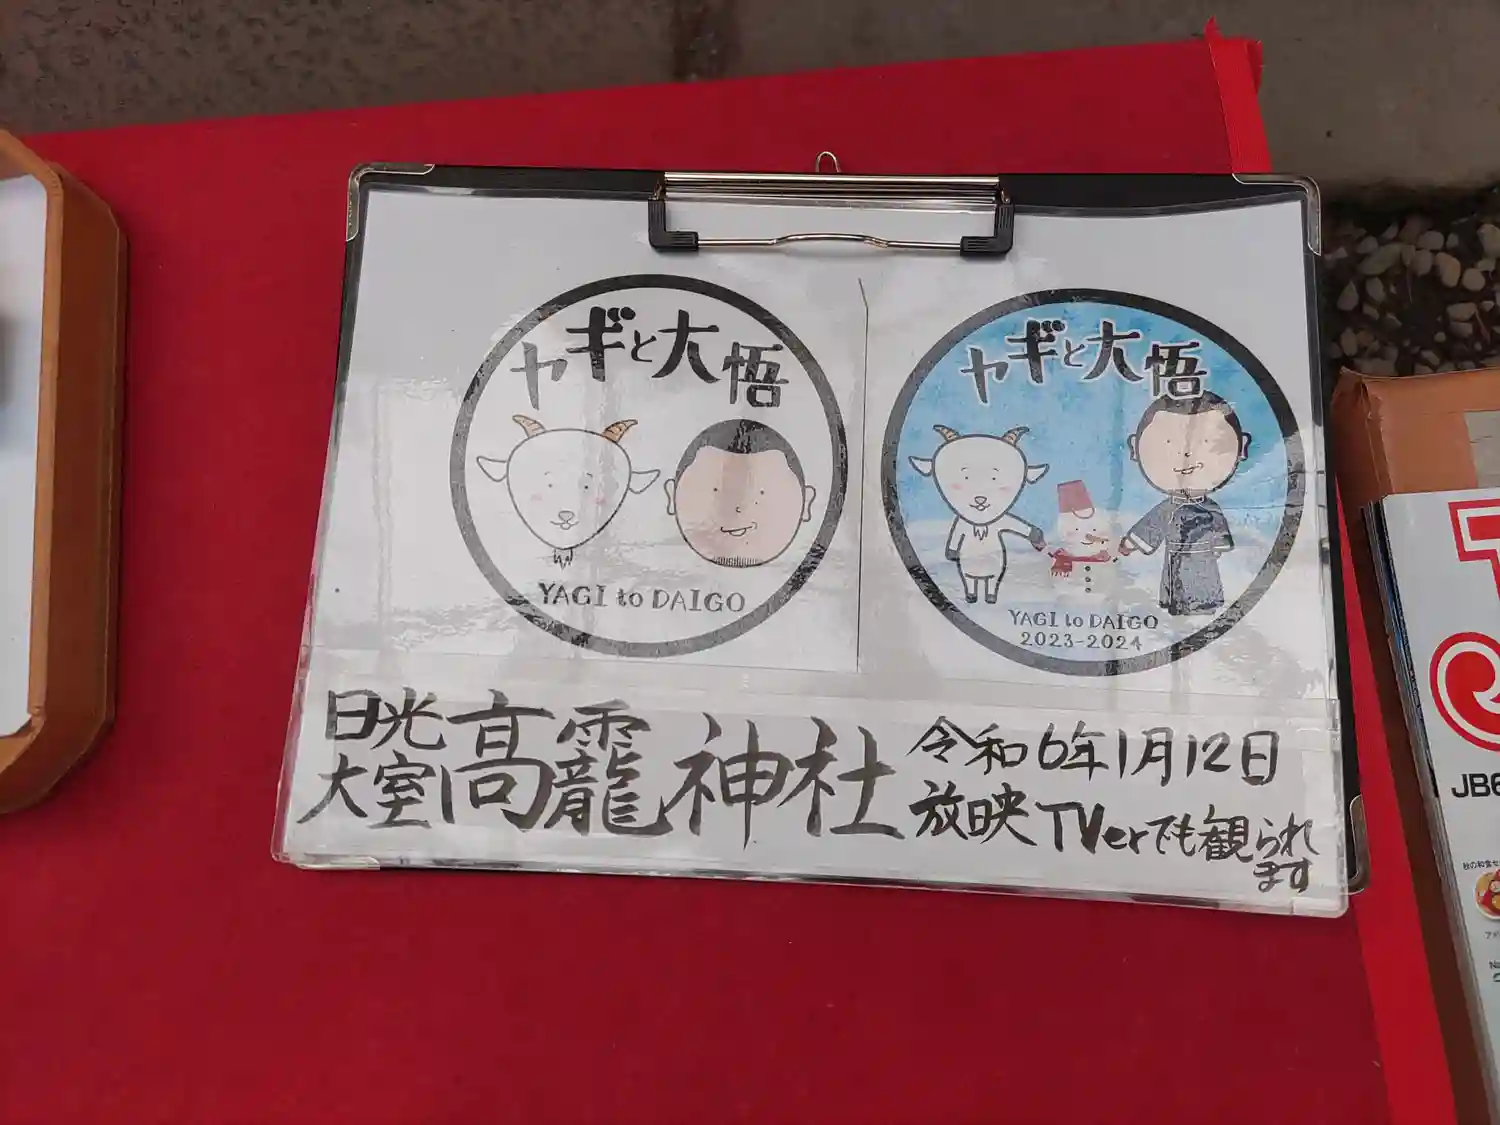 ヤギと大悟
YAGI to DAIGO
ヤギと大悟
YAGI to DAIGO
2023-2024
日光
大室
高龗神社
令和6年1月12日
放映TVerでも観られ
ます
JB6